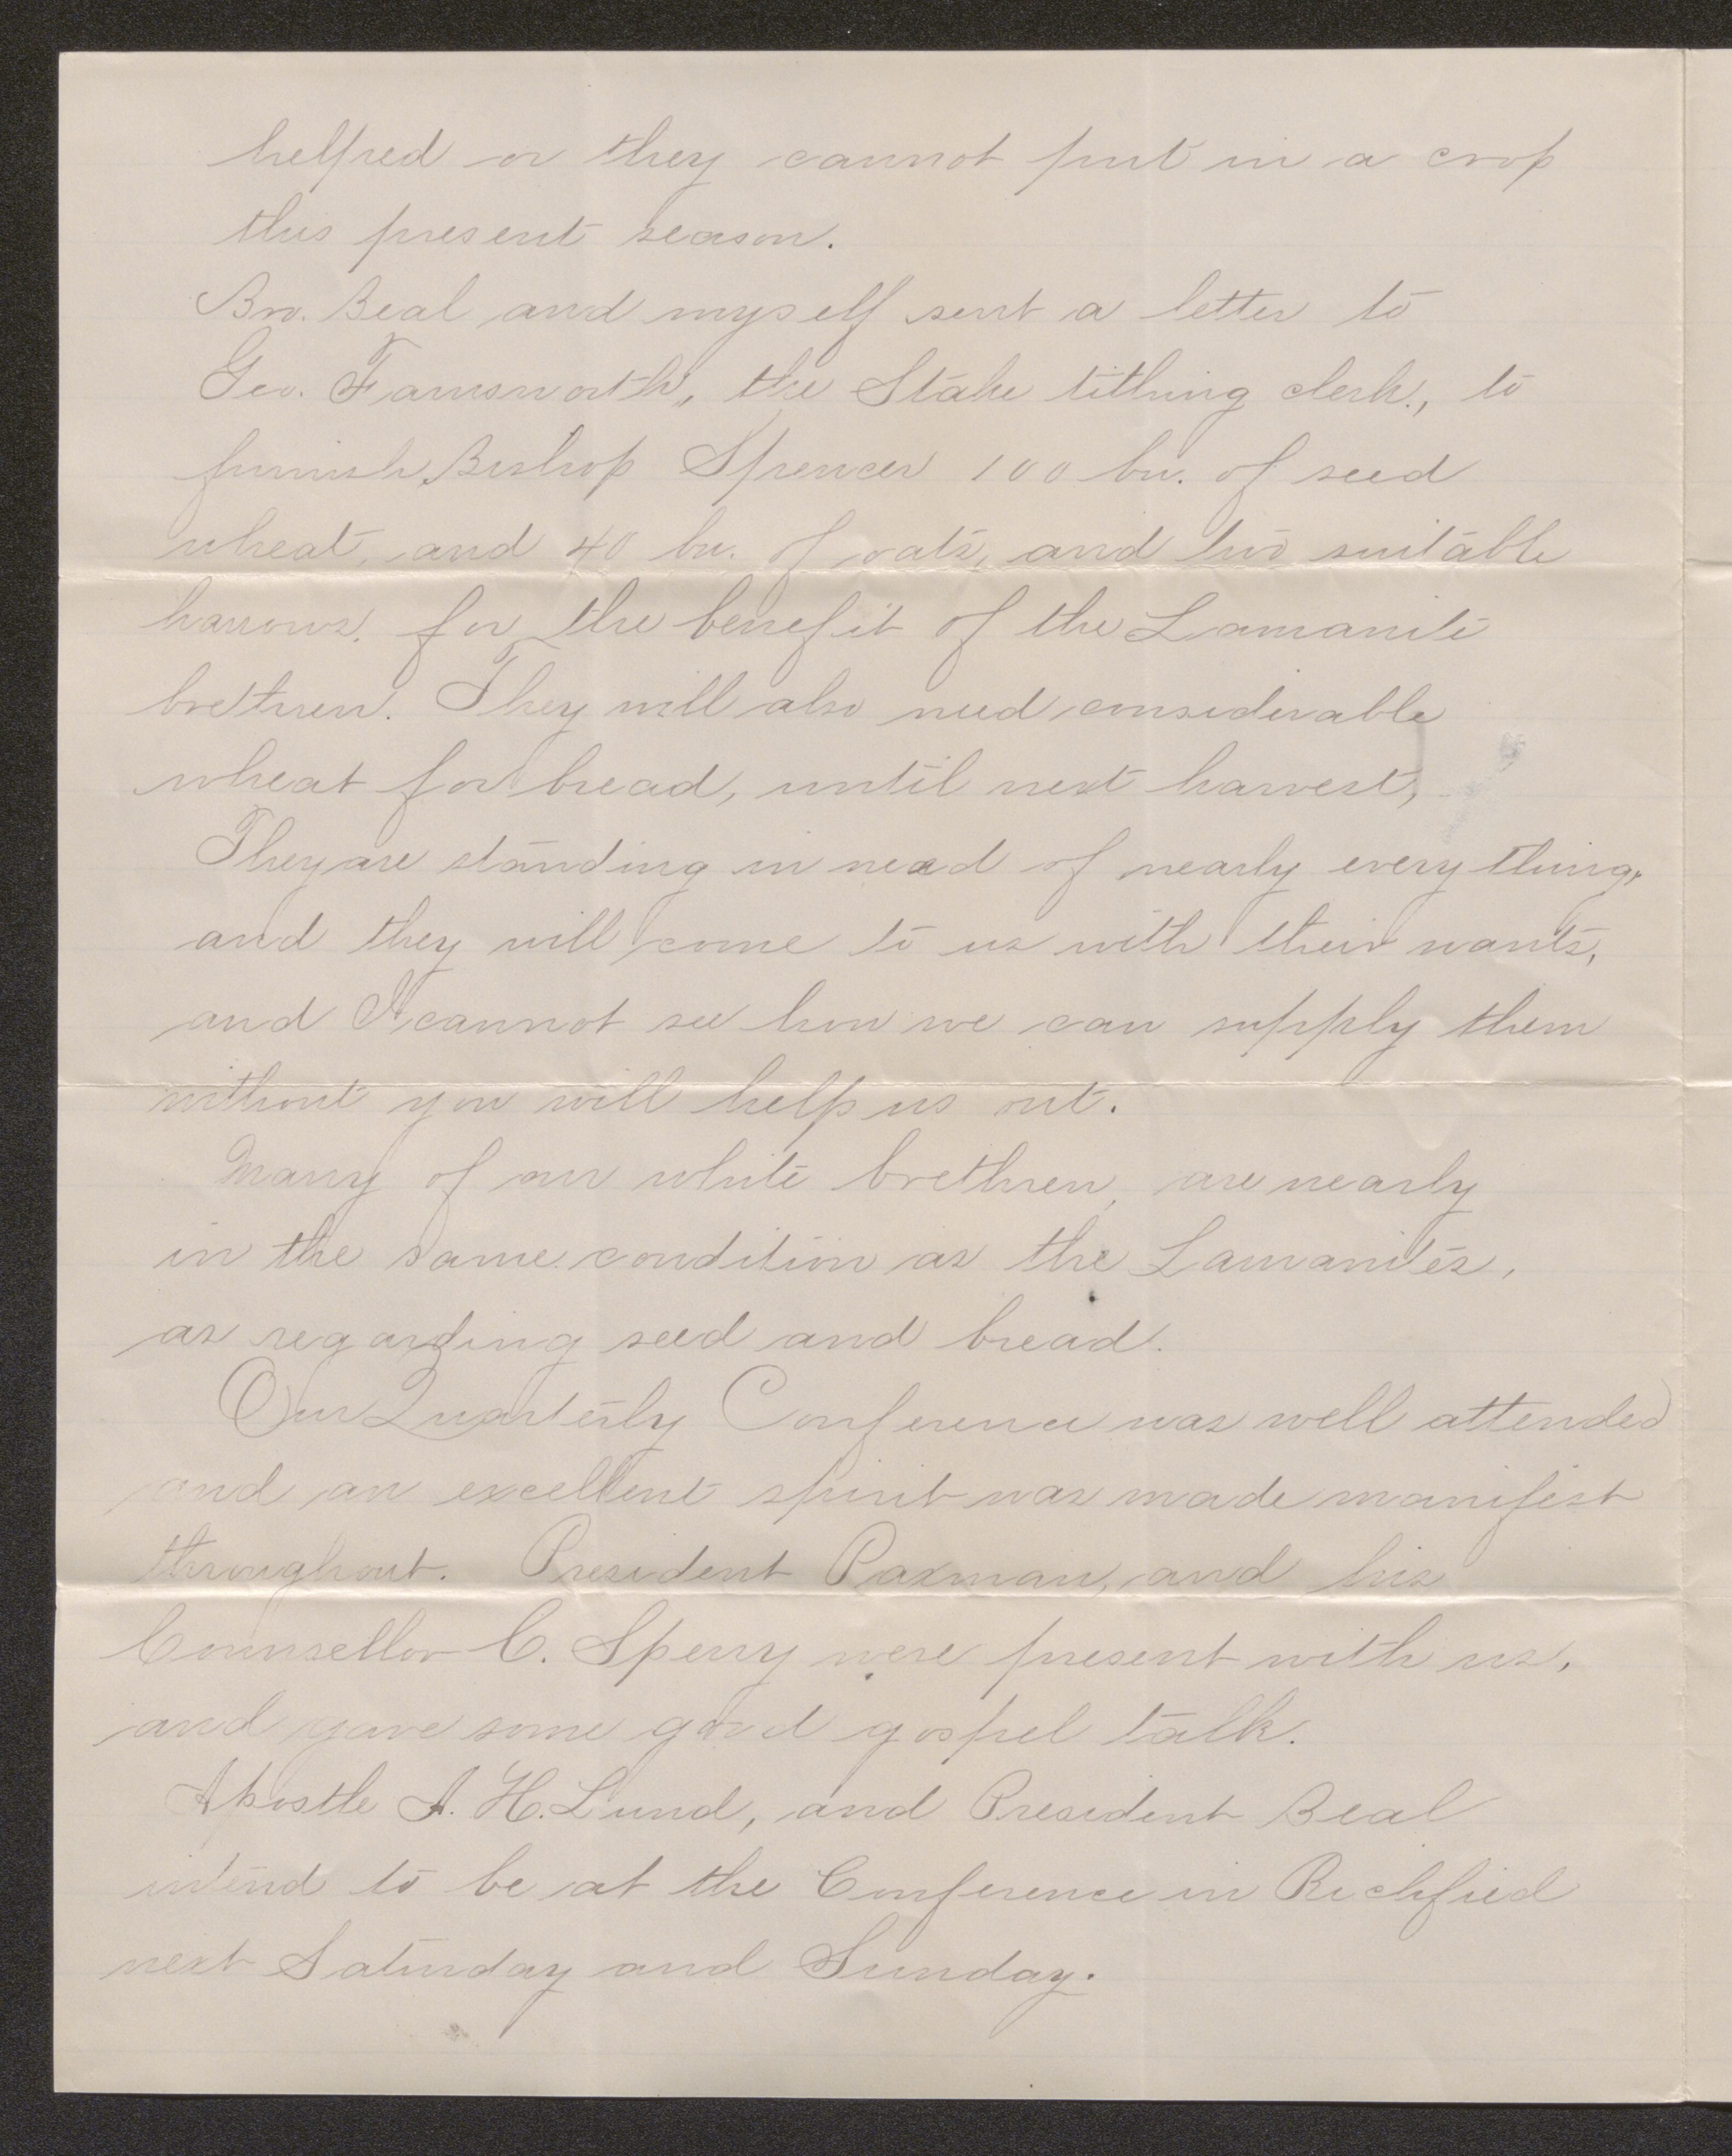 helped or they cannot put in a crop
this present season.
Bro. Beal and myself sent a letter to
Geo. Farnsworth, the Stake tithing clerk., to
furnish Bishop Spencer 100 bu. of seed
wheat, and 40 bu. of oats, and two suitable
harrows. for the benefit of the Lamanite
brethren. They will also need considerable
wheat for bread, until next harvest,
They are standing in need of nearly every thing,
and they will come to us with their wants,
and I cannot see how we can supply them
without you will help us out.
Many of our white brethren, are nearly
in the same condition as the Lamanites,
as regarding seed and bread.
Our Quarterly Conference was well attended
and an excellent spirit was made manifest
throughout. President Paxman, and his
Counsellor C. Sperry were present with us,
and gave some good gospel talk.
Apostle A. H. Lund, and President Beal
intend to be at the Conference in Richfied
next Saturday and Sunday.